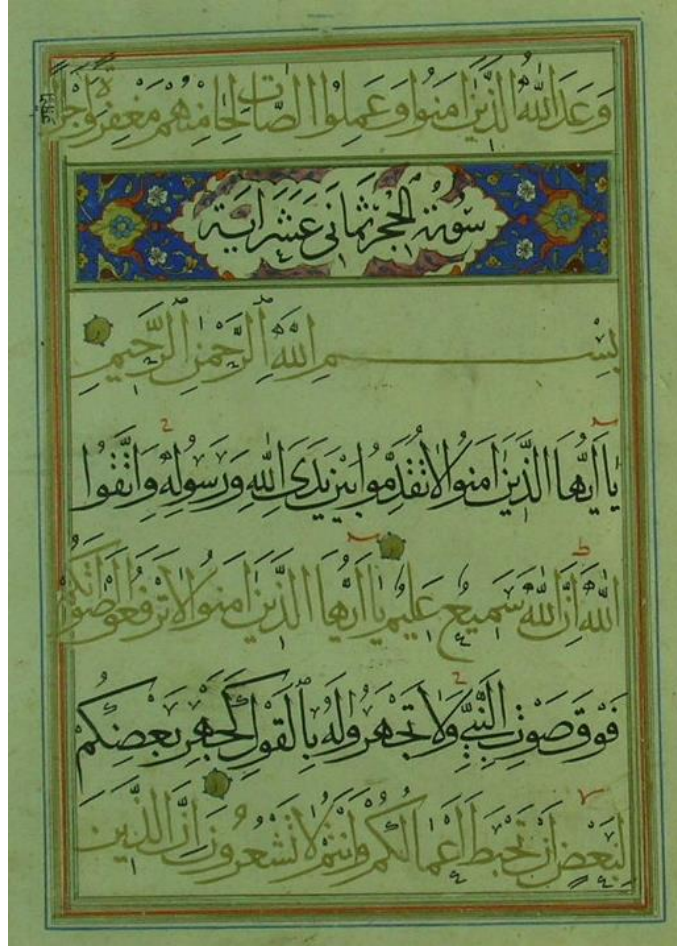 وَعَدَ اللّٰهُ الَّذِينَ اٰمَنُوا وَعَمِلُوا الصَّالِحَاتِ مِنْهُمْ مَغْفِرَةً وَاَجْرًا
سُورَةُ الْحُجُرَاتِ ثَمَانِي عَشَرَ اٰيَة
بِسْمِ اللّٰهِ الرَّحْمٰنِ الرَّحِيمِ
يَا اَيُّهَا الَّذِينَ اٰمَنُوا لَا تُقَدِّمُوا بَيْنَ يَدَيِ اللّٰهِ وَرَسُولِهِ وَاتَّقُوا
اللّٰهَ اِنَّ اللّٰهَ سَمِيعٌ عَلِيمٌ يَا اَيُّهَا الَّذِينَ اٰمَنُوا لَا تَرْفَعُوا اَصْوَاتَكُمْ
فَوْقَ صَوْتِ النَّبِيِّ وَلَا تَجْهَرُوا لَهُ بِالْقَوْلِ كَجَهْرِ بَعْضِكُمْ
لِبَعْضٍ اَنْ تَحْبَطَ اَعْمَالُكُمْ وَاَنْتُمْ لَا تَشْعُرُونَ اِنَّ الَّذِينَ